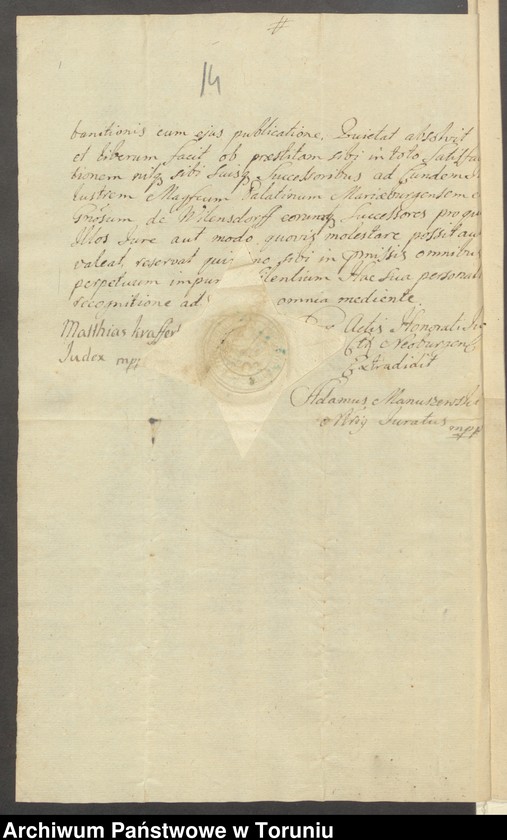 14
banitionis cum ejus publicatione. Quietat absolvit
et liberum facit ob præstitam sibi in toto Satisfac
tionem sibi Suisq Successoribus ad Eundem
lustrem Magfcum Palatinum Marieburgensem
Gnosum de Wilensdorff eorumq Successores pro
Illos Jure aut modo quovis molestare possit aut
valeat, reservat sibi in pmissis omnibus
perpetuum Silentium Hac Sua personali
recognitione ad omnia mediente.
Matthias Kraffert
Judex mpp
Ex Actis Honorati
Neoburgen
Extradidit
Adamus Manuszewski
Nrius Juratus mpp
Archiwum Państwowe w Toruniu